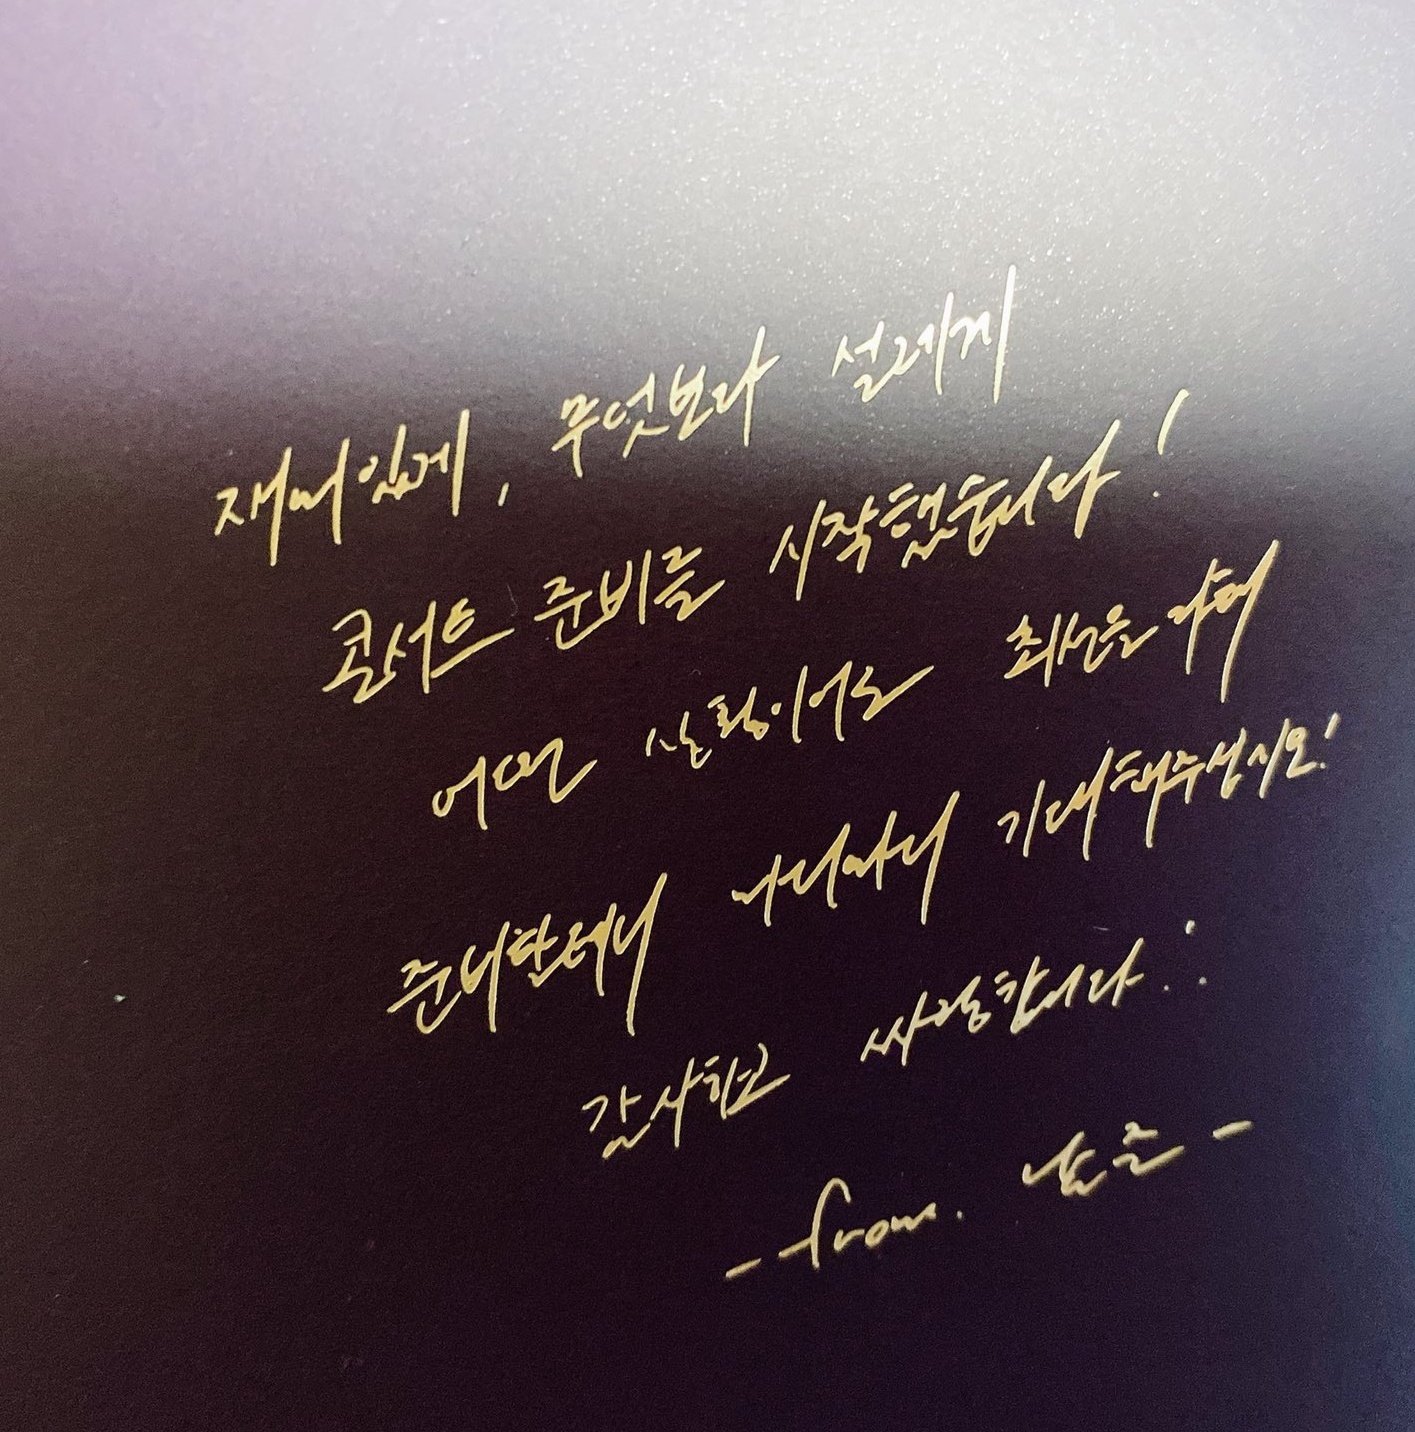 재미있게, 무엇보다 설레게
콘서트 준비를 시작했습니다!
어떤 상황이어도 최선을 다해
준비할테니 기대해주십시오!
감사하고 싸랑합니다!
- from. 남준 -